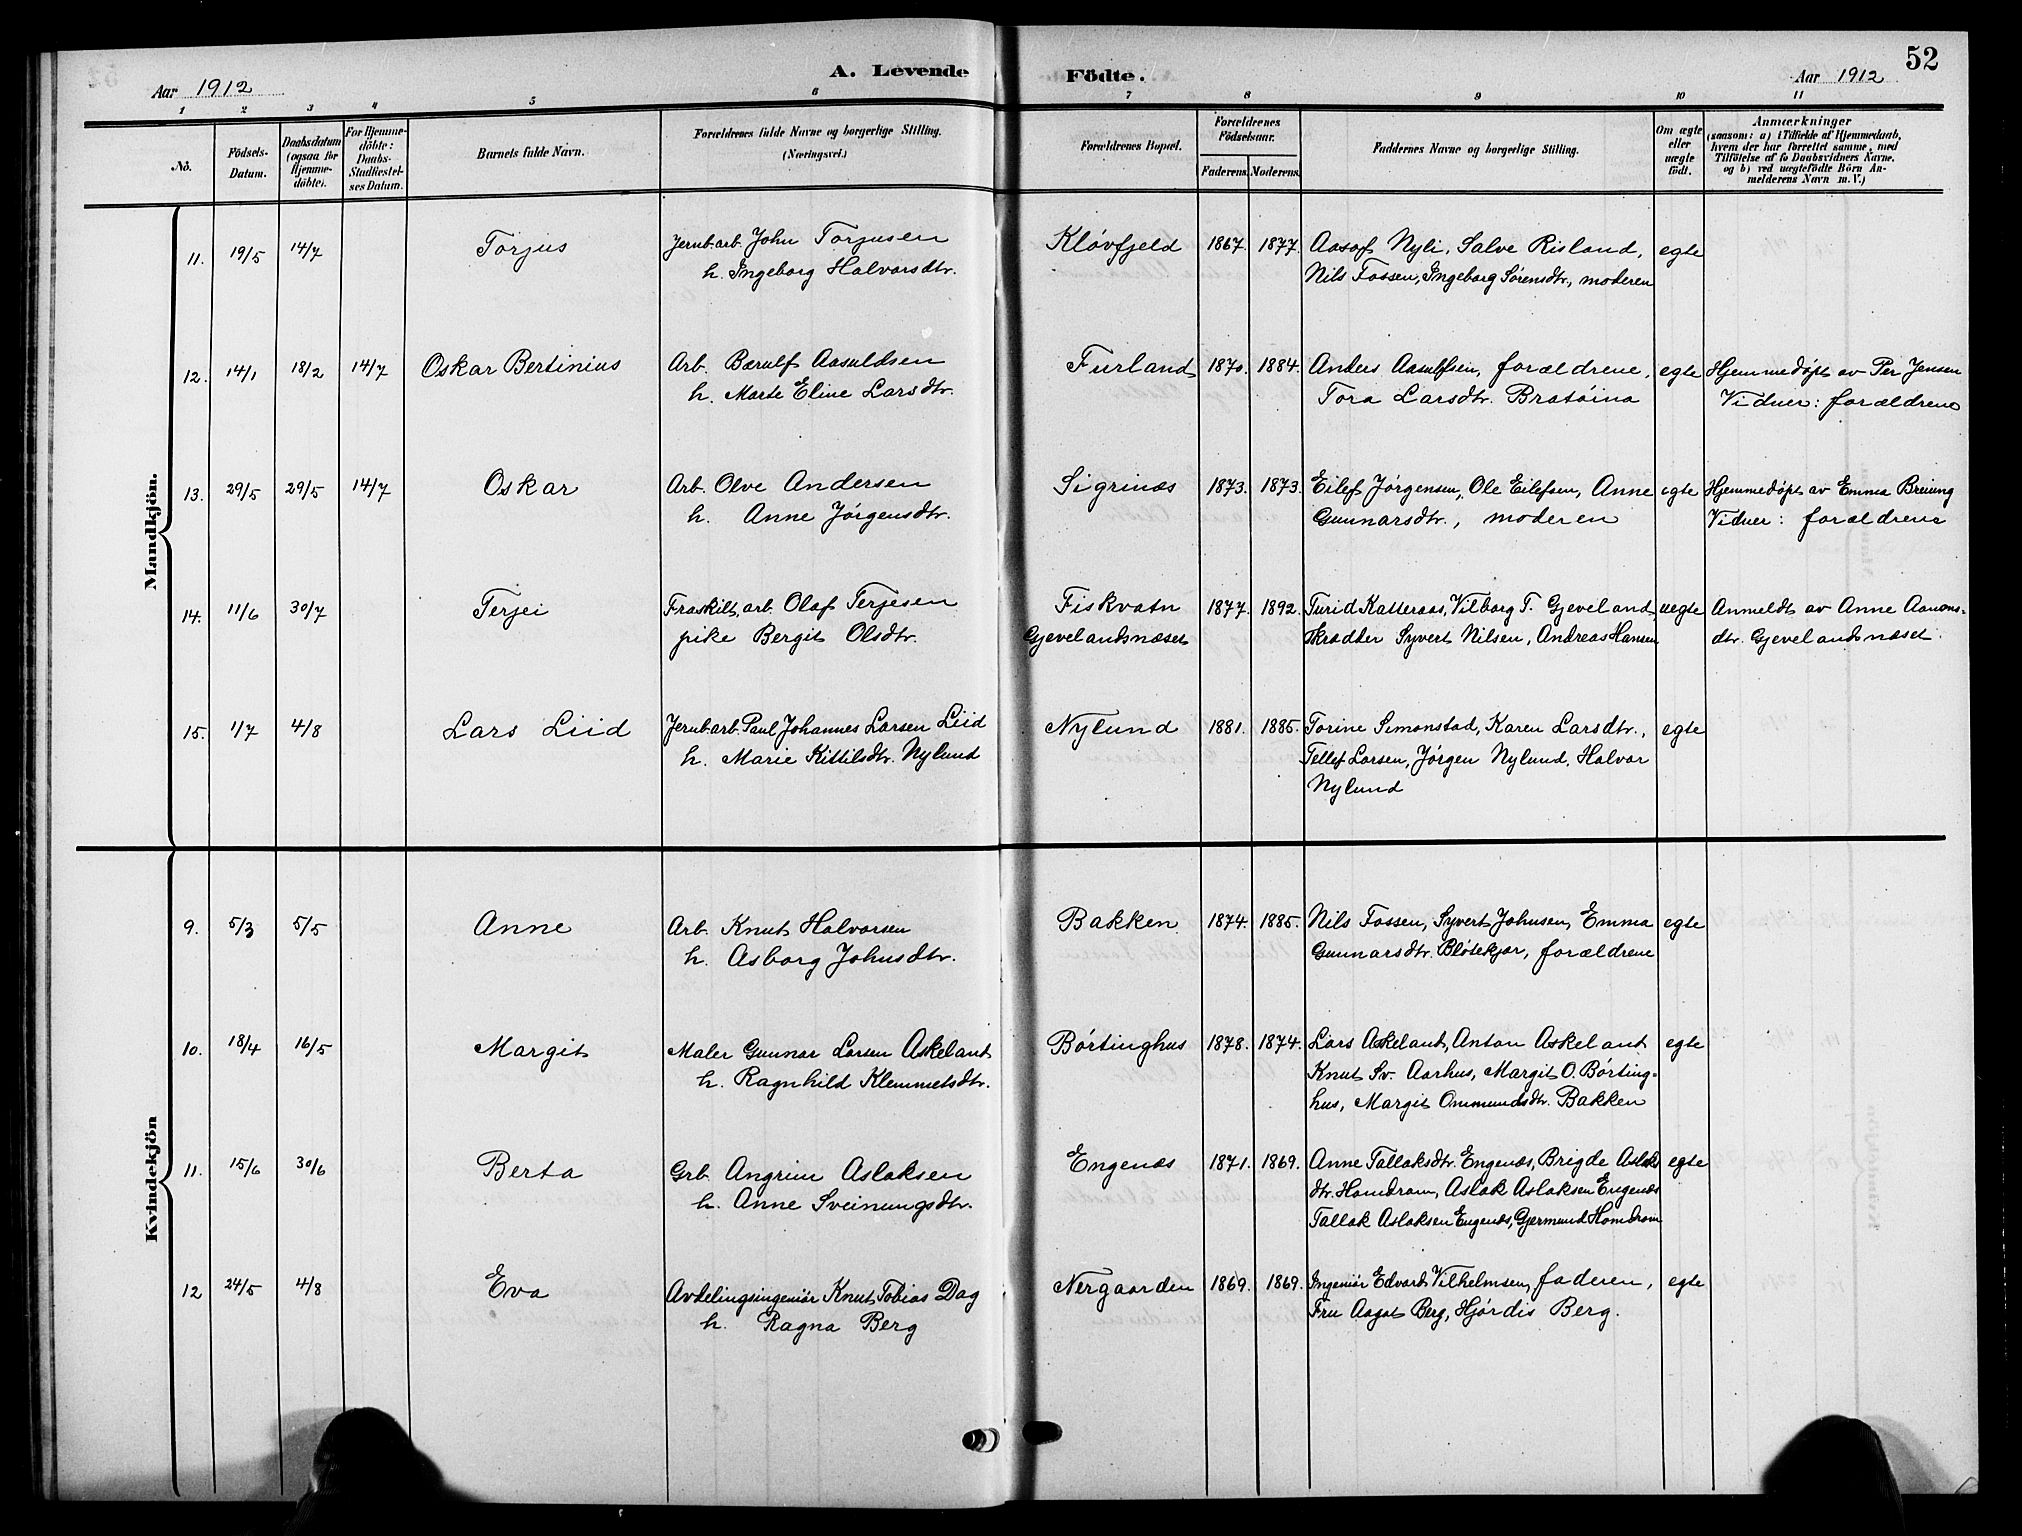 52
A. Levende Födte.
Aar 1912
Aar 1912
1 2 3 4 5 6 7 8 9 10 11
No.
Födsels-Datum.
Daabsdatum (ogsaa for Hjemme-döbte).
For Hjemme-döbte: Daabs-Stadfæstel-ses Datum.
Barnets fulde Navn.
Forældrenes fulde Navne og borgerlige Stilling.
(Næringsvei.)
Forældrenes Bopæl.
Forældrenes Födselsaar.
Faderens. Moderens.
Faddernes Navne og borgerlige Stilling.
Om ægte eller uægte födt.
Anmærkninger
(saasom: a) i Tilfælde af Hjemmedaab,
hvem der har forrettet samme, med
Tilföielse af to Daabsvidners Navne.
og b) ved uægtefödte Börn An-
melderens Navn m. V.)
Mandkjön.
11. 19/5 14/7 Torjus Jernb.arb. John Torjusen Kløvfjeld 1867. 1877. Aasof Nyli, Salve Risland, egte
h. Ingeborg Halvorsdtr. Nils Fossen, Ingeborg Sørensdtr., moderen
12. 14/1 18/2 14/7 Oskar Bertinius Arb. Bærulf Aasuldsen Furland 1870. 1884. Anders Aasulfsen, forældrene, egte Hjemmedøpt av Per Jensen
h. Marte Eline Larsdtr. Tora Larsdtr. Bratøina Vidner: forældrene
13. 29/5 29/5 14/7 Oskar Arb. Olve Andersen Sigrinæs 1873. 1873. Eilef Jørgensen, Ole Eilefsen, Anne egte Hjemmedøpt av Emma Breiung
h. Anne Jørgensdtr. Gunnarsdtr., moderen Vidner: forældrene
14. 11/6 30/7 Terjei Fraskilt, arb. Olaf Terjesen Fiskvatn 1877. 1892. Turid Katteraas, Vilborg T. Gjeveland, uegte Anmeldt av Anne Aanons-
pike Bergit Olsdtr. Gjevelandsnæset Skrædder Syvert Nilsen, Andreas Hansen dtr. Gjevelandsnæset.
15. 1/7 4/8 Lars Liid Jernb.arb. Paul Johannes Larsen Liid Nylund 1881. 1885. Torine Simonstad, Karen Larsdtr., egte
h. Marie Kittilsdtr. Nylund Tellef Larsen, Jørgen Nylund, Halvor
Nylund
Kvindekjön
9. 5/3 5/5 Anne Arb. Knut Halvorsen Bakken 1874. 1885. Nils Fossen, Syvert Johnsen, Emma egte
h. Asborg Johnsdtr. Gunnarsdtr. Bløtekjær, forældrene
10. 18/4 16/5 Margit Maler Gunnar Larsen Askeland Børtinghus 1878. 1874. Lars Askeland, Anton Askeland egte
h. Ragnhild Klemmetsdtr. Knut Sv. Aarhus, Margit O. Børting-
hus, Margit Ommundsdtr. Bakken
11. 15/6 30/6 Berta Grb. Angrim Aslaksen Engenæs 1871. 1869. Anne Tallaksdtr. Engenæs, Brigde Aslaks egte
h. Anne Sveinungsdtr. dtr. Homdrom, Aslak Aslaksen Engenæs
Tallak Aslaksen Engenæs, Gjermund Homdrom
12 24/5 4/8 Eva Avdelingsingeniør Knut Tobias Dag Nergaarden 1869. 1869. Ingeniør Edvard Vilhelmsen, faderen, egte
h. Ragna Berg Fru Aagot Berg, Hjørdis Berg.